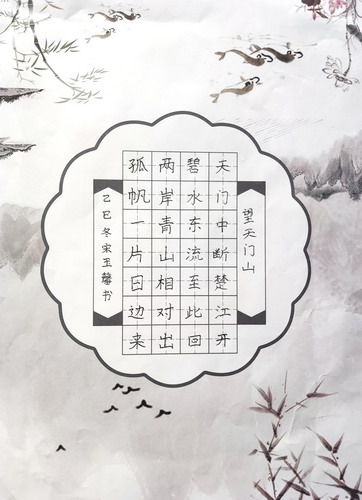 望天门山
天门中断楚江开
碧水东流至此回
两岸青山相对出
孤帆一片日边来
乙巳冬宋玉馨书